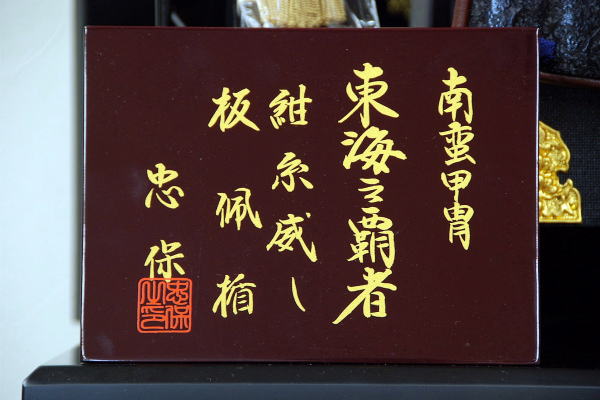 南蛮甲冑
東海之覇者
紺糸威し
板佩楯
忠保
忠保之印